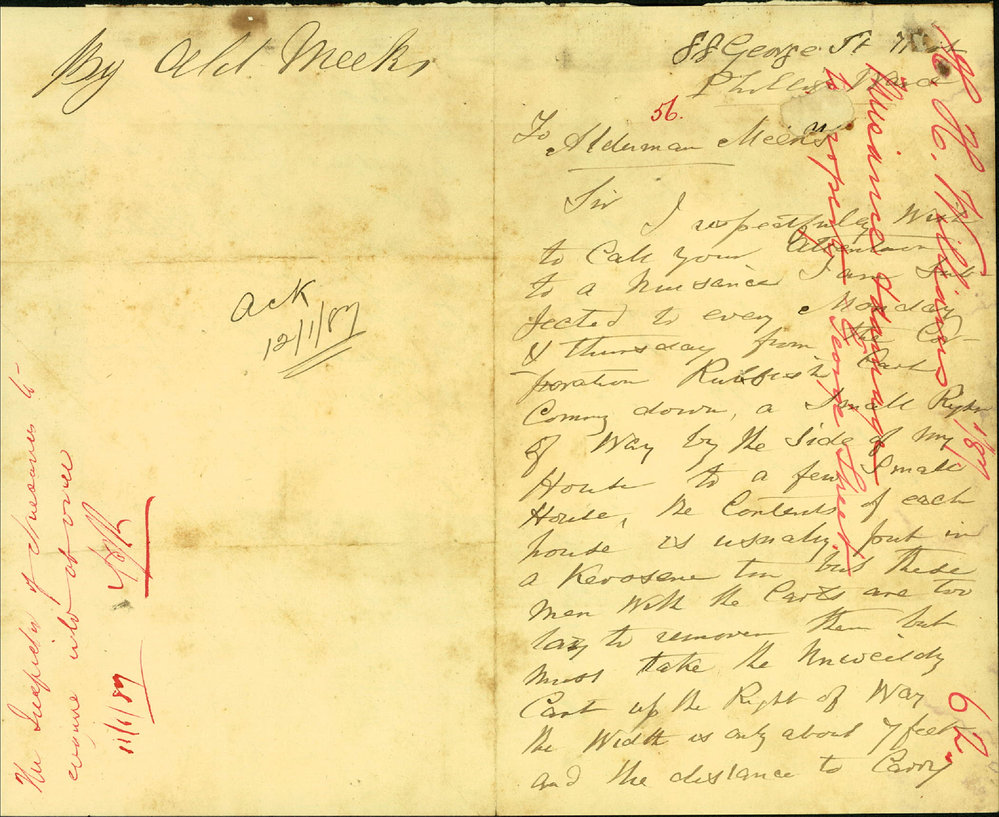 By Ald. Meeks
Ack
12/1/87
The Inspector of Nuisances to
enquire into at once
11/1/87
88 George St West
56.
To
Alderman Meeks
Sir I respectfully Wish
to Call your Attention
to a Nuisance I am Sub
jected to every Monday
& thursday from the Cor-
poration Rubbish Cart
Coming down, a Small Right
of Way by the Side of my
House to a few Small
House, the Contents of each
house is usually put in
a Kerosene tin but these
men with the Carts are too
lazy to remove them but
must take the Unweildy
Cart up the Right of Way
the Width is only about 7 feet
and the distance to Carry
H. Williams
187
Nuisance & damage
to property George Street
62